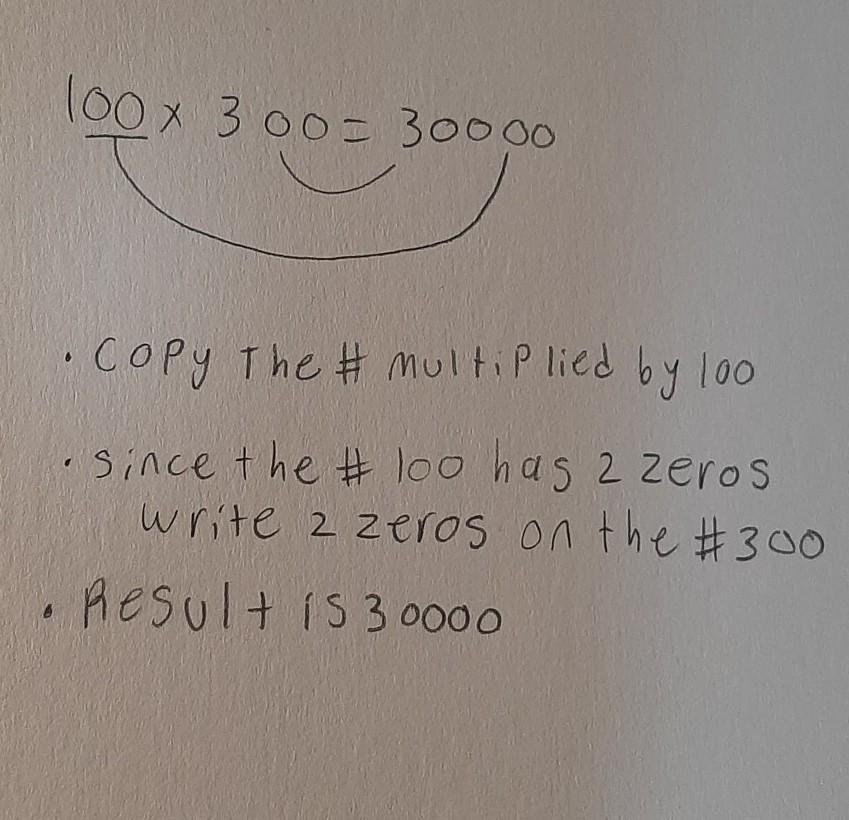 100 x 300 = 30000
• Copy The # multiplied by 100
• since the # 100 has 2 zeros
write 2 zeros on the #300
• Result is 30000